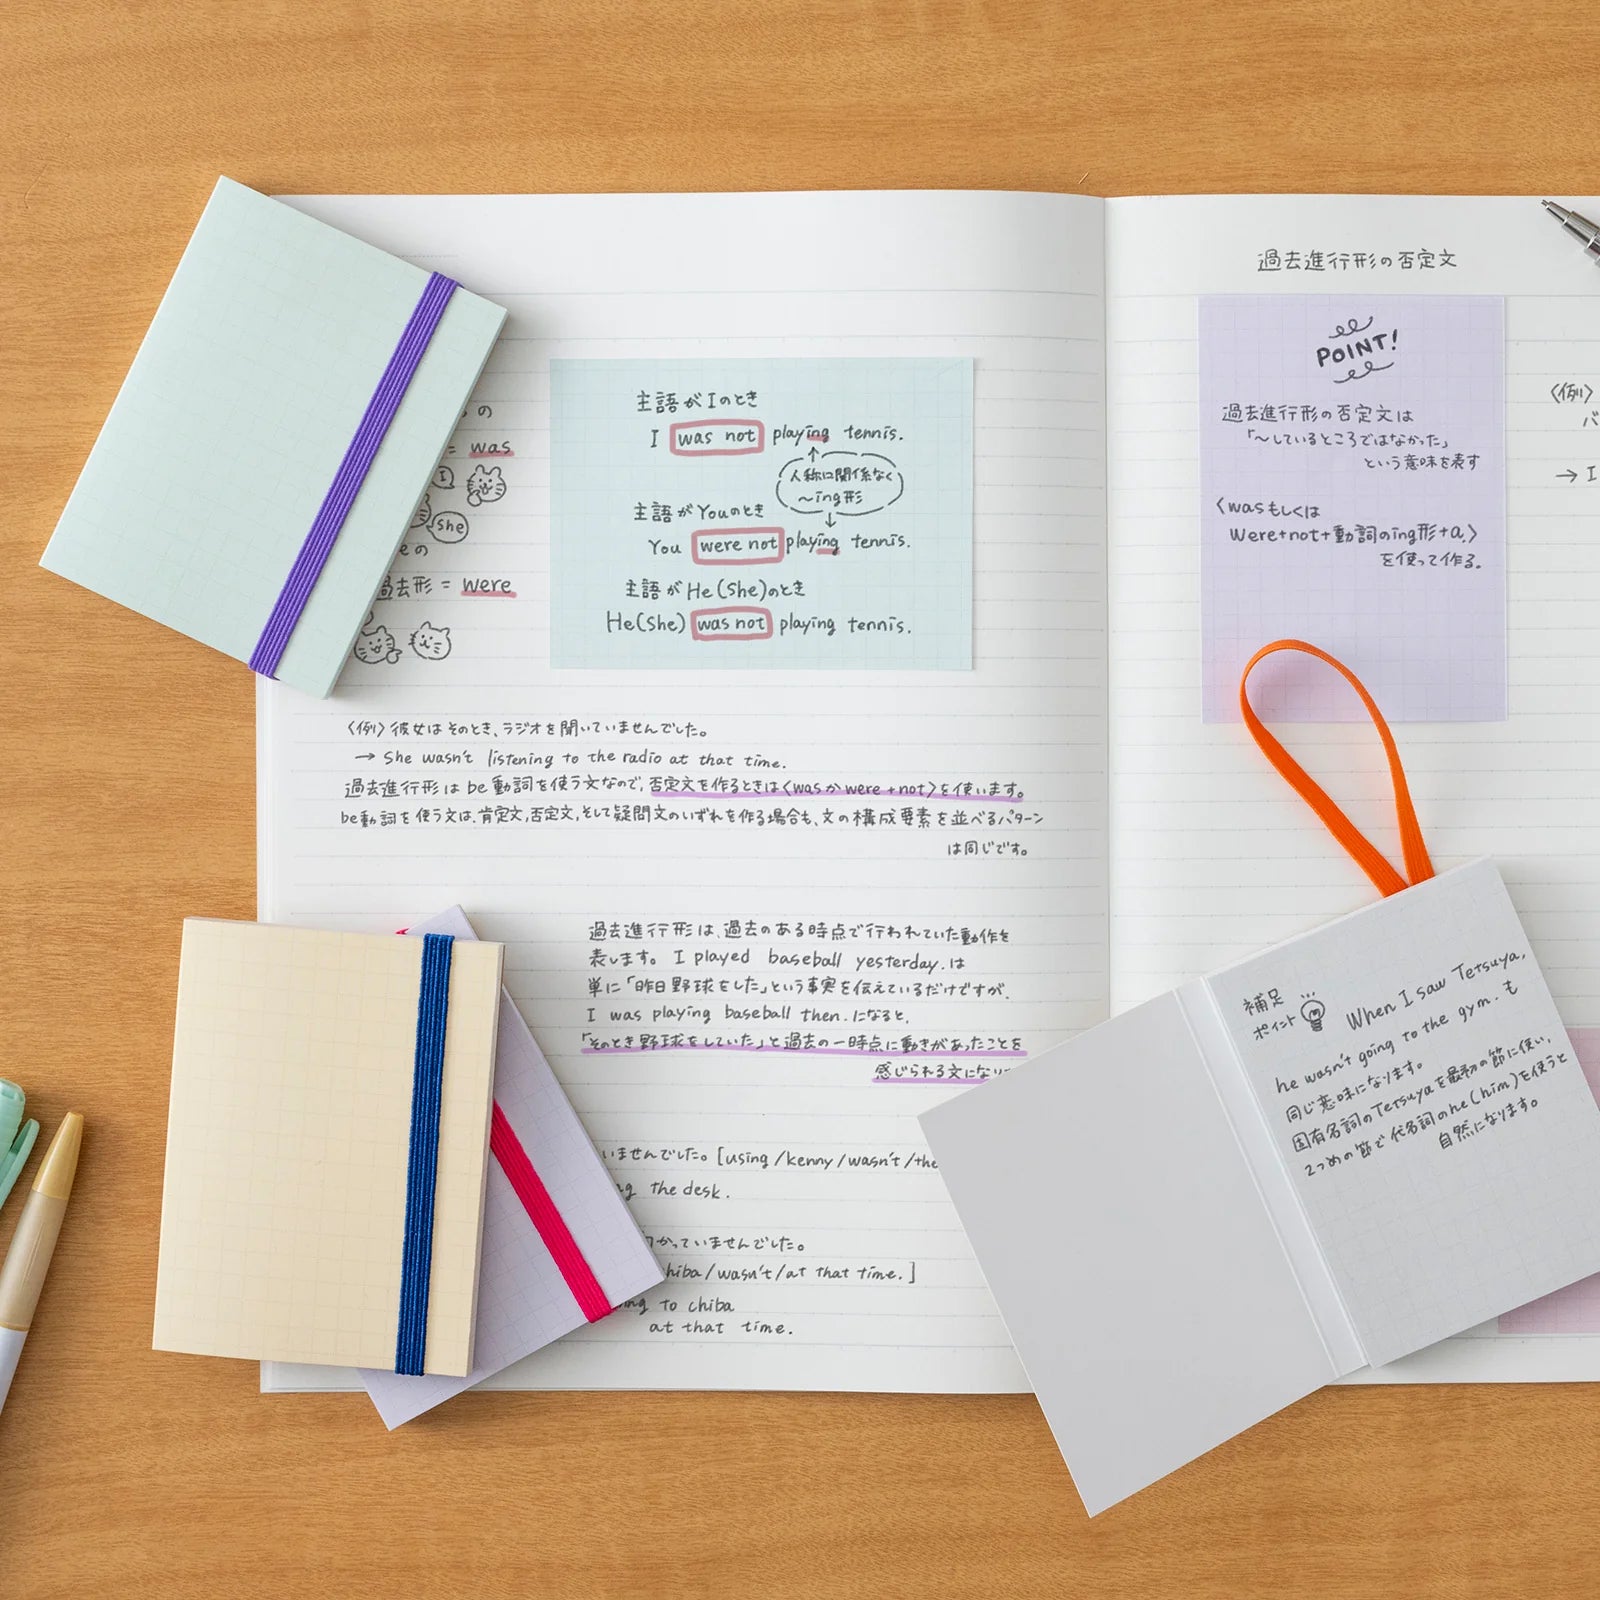 の
= was
I
She
eの
過去形 = were
主語が Iのとき
I was not playing tennis.
人称に関係なく
～ing形
主語が Youのとき
You were not playing tennis.
主語が He(She)のとき
He(She) was not playing tennis.
〈例〉彼女はそのとき、ラジオを聞いていませんでした。
→ She wasn't listening to the radio at that time.
過去進行形は be動詞を使う文なので、否定文を作るときは〈was か were + not〉を使います。
be動詞を使う文は、肯定文,否定文,そして疑問文のいずれを作る場合も、文の構成要素を並べるパターン
は同じです。
過去進行形は、過去のある時点で行われていた動作を
表します。 I played baseball yesterday. は
単に「昨日野球をした」という事実を伝えているだけですが、
I was playing baseball then. になると、
「そのとき野球をしていた」と過去の一時点に動きがあったことを
感じられる文になり
いませんでした。[using / kenny / wasn't / the
ng the desk.
かっていませんでした。
hiba / wasn't / at that time.]
ing to chiba
at that time.
過去進行形の否定文
POINT!
過去進行形の否定文は
「～しているところではなかった」
という意味を表す
〈wasもしくは
Were+not+動詞のing形+a.〉
を使って作る。
〈例〉
バ
→ I
補足
ポイント
When I saw Tetsuya,
he wasn't going to the gym. も
同じ意味になります。
固有名詞のTetsuyaを最初の節に使い、
2つめの節で代名詞のhe(him)を使うと
自然になります。